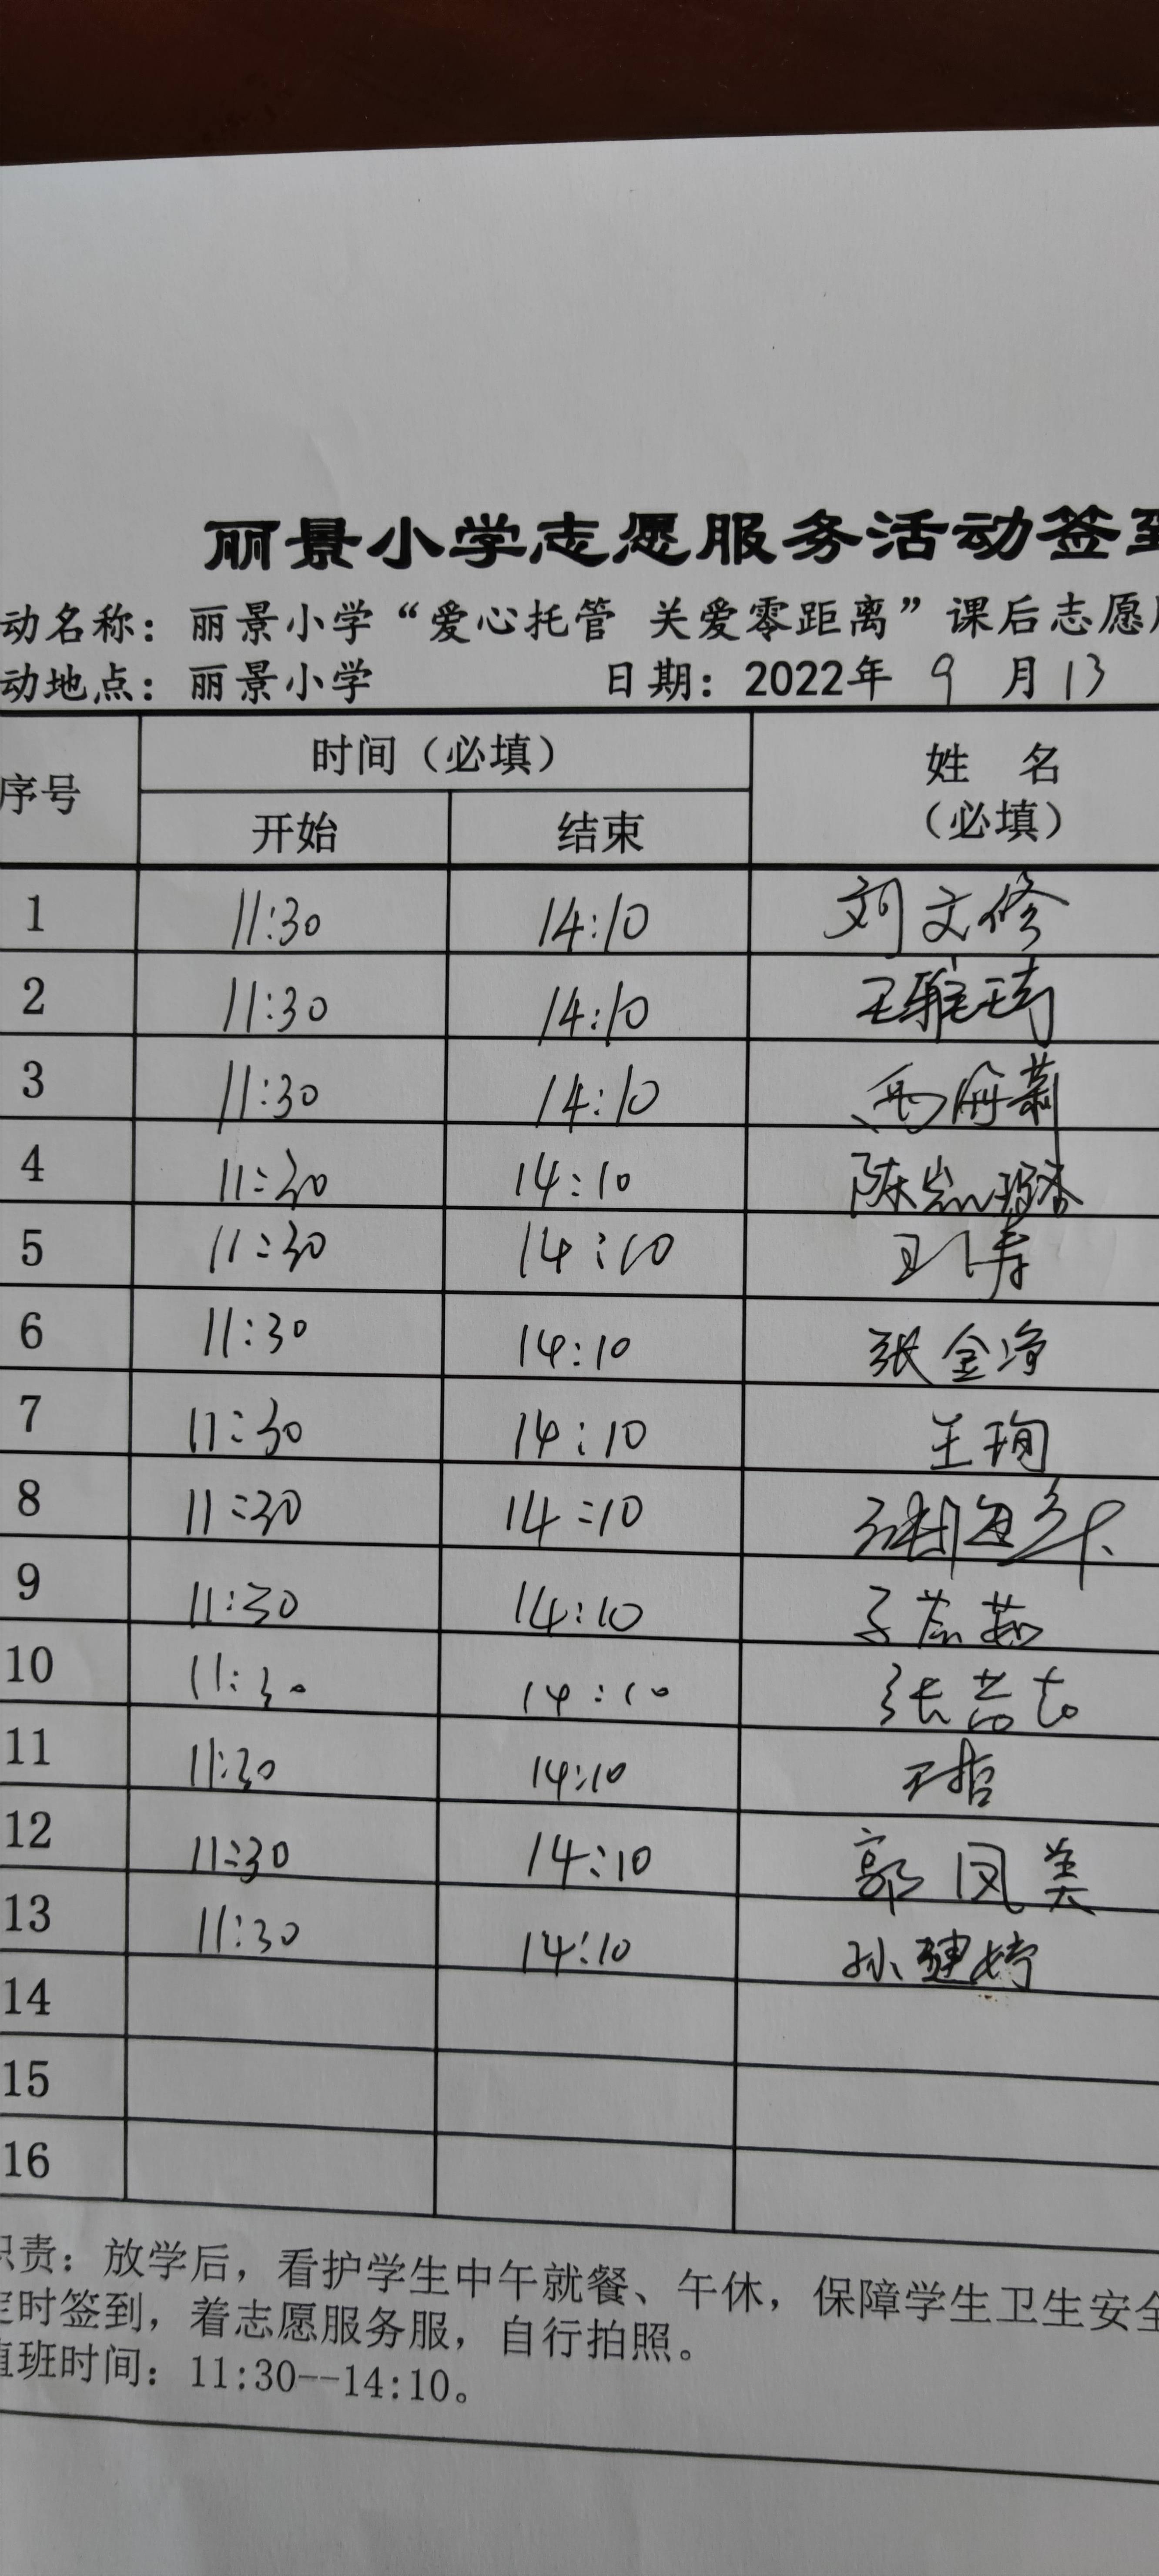 丽景小学志愿服务活动签到
动名称：丽景小学“爱心托管 关爱零距离”课后志愿服
动地点：丽景小学 日期：2022年 9 月 13
序号 时间（必填） 姓 名（必填）
开始 结束
1 11:30 14:10 刘文修
2 11:30 14:10 王雅琦
3 11:30 14:10
4 11:30 14:10 陈
5 11:30 14:10
6 11:30 14:10 张金净
7 11:30 14:10 王珣
8 11:30 14:10
9 11:30 14:10
10 11:30 14:10 张
11 11:30 14:10 王哲
12 11:30 14:10 郭凤美
13 11:30 14:10 孙建婷
14
15
16
职责：放学后，看护学生中午就餐、午休，保障学生卫生安全
定时签到，着志愿服务服，自行拍照。
值班时间：11:30--14:10。